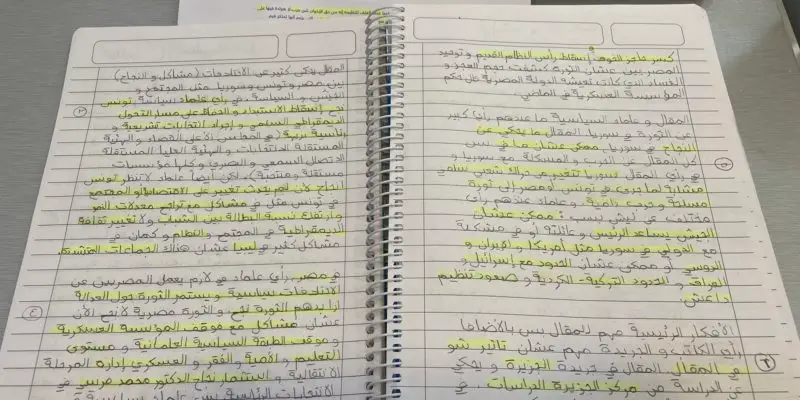 كسر حاجز الخوف، إسقاط رأس النظام القديم و توحيد
المصريين عشان الثورة كشفت حجم العجز و
الفساد الي كانت تعيشه الدولة المصرية ظل حكم
المؤسسة العسكرية في الماضي
المقال و علماء السياسية ما عندهم رأي كبير
عن الثورة في سوريا. المقال ما يحكي عن
النجاح في سوريا. ممكن عشان ما في بس
كل المقال عن الحرب و المسكلة مع سوريا و
في رأي المقال سوريا تتغير من حراك شعبي سلمي
مشابة لما جرى في تونس أو مصر إلى ثورة
مسلحة و حرب دامية. و علماء عندهم رأي
مختلف في ليش بسبب: ممكن عشان
الجيش يساعد الرئيس و عائلته أو في مشكلة
مع الدولي في سوريا مثل أمريكا و إيران و
الروسي أو ممكن عشان الحدود مع إسرائيل و
العراق و الحدود التركية - الكردية و صعود تنظيم
داعش.
الأفكار الرئيسية مهم للمقال بس بالاضافا
رأي الكاتب و الجريدة مهم عشان تاثير شو
في المقال. المقال في جريدة الجزيرة و يحكي
عن الدراسة من مركز الجزيرة الدراسات. في
المقال يحكي كثير عن الاختلافات (مشاكل و النجاح)
بين مصر و تونس و سوريا مثل المجتمع و
الجيش و السياسة. في رأي علماء سياسية تونس
نجح إسقاط الاستبداد و الحفاظ على مسار التحول
الديمقراطي السلمي و إجراء انتخابات تشريعية و
رئاسية نزيهة (في المجلس الأعلى القضاء و الهيئة
المستقلة الانتخابات و الهيئة العليا المستقلة
الاتصال السمعي و البصري و كلها مؤسسات
مستقلة و منتخبة). لكن أيضا علماء لا تنظر تونس
انجاح لأن لم يحدث تغيير على الاقتصاد أو المجتمع
في تونس مثل في مشاكل مع تراجع معدلات النمو
و ارتفاع نسبة البطالة بين الشباب و لا تغيير ثقافة
الديمقراطية في المجتمع و النظام و كمان في
مشاكل كثير في ليبيا عشان هناك الجماعات المتشددة.
في مصر، رأي علماء في لازم يعمل المصريين عن
الاختلافات سياسية و يستمر الثورة حول العدالة
إذا بدهم الثورة نجح. و الثورة مصرية لا نجح الآن
عشان مشاكل مع موقف المؤسسة العسكرية
و موقف الطبقة السياسية العلمانية و مستوى
التعليم و الأمية و الفقر و العسكري إدارة المرحلة
الانتقالية و استثمار نجاح الدكتور محمد مرسي في
الانتخابات الرئاسية